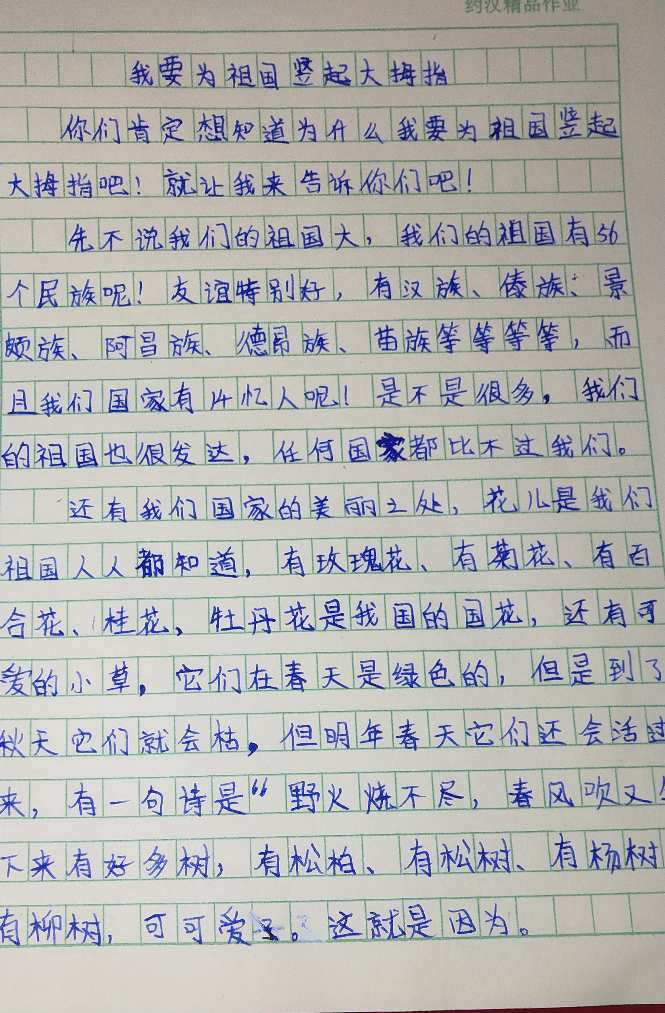 约汉精品作业
我要为祖国竖起大拇指
你们肯定想知道为什么我要为祖国竖起
大拇指吧！就让我来告诉你们吧！
先不说我们的祖国大，我们的祖国有56
个民族呢！友谊特别好，有汉族、傣族、景
颇族、阿昌族、德昂族、苗族等等等等，而
且我们国家有14忆人呢！是不是很多，我们
的祖国也很发达，任何国家都比不过我们。
还有我们国家的美丽之处，花儿是我们
祖国人人都知道，有玫瑰花、有菊花、有百
合花、桂花，牡丹花是我国的国花，还有可
爱的小草，它们在春天是绿色的，但是到了
秋天它们就会枯，但明年春天它们还会活过
来，有一句诗是“野火烧不尽，春风吹又
下来有好多树，有松柏、有松树、有杨树
有柳树，可可爱了。这就是因为。